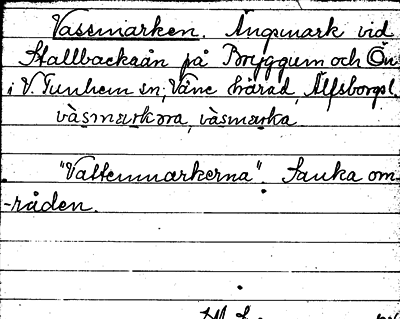 Vassmarken. Ängsmark vid
Stallbackaån på Bryggum och Ön
i V. Tunhem sn, Väne härad, Älfsborgs l.
vàsmarkɷra, vàsmarka
"Vattenmarkerna". Sanka om-
-råden.